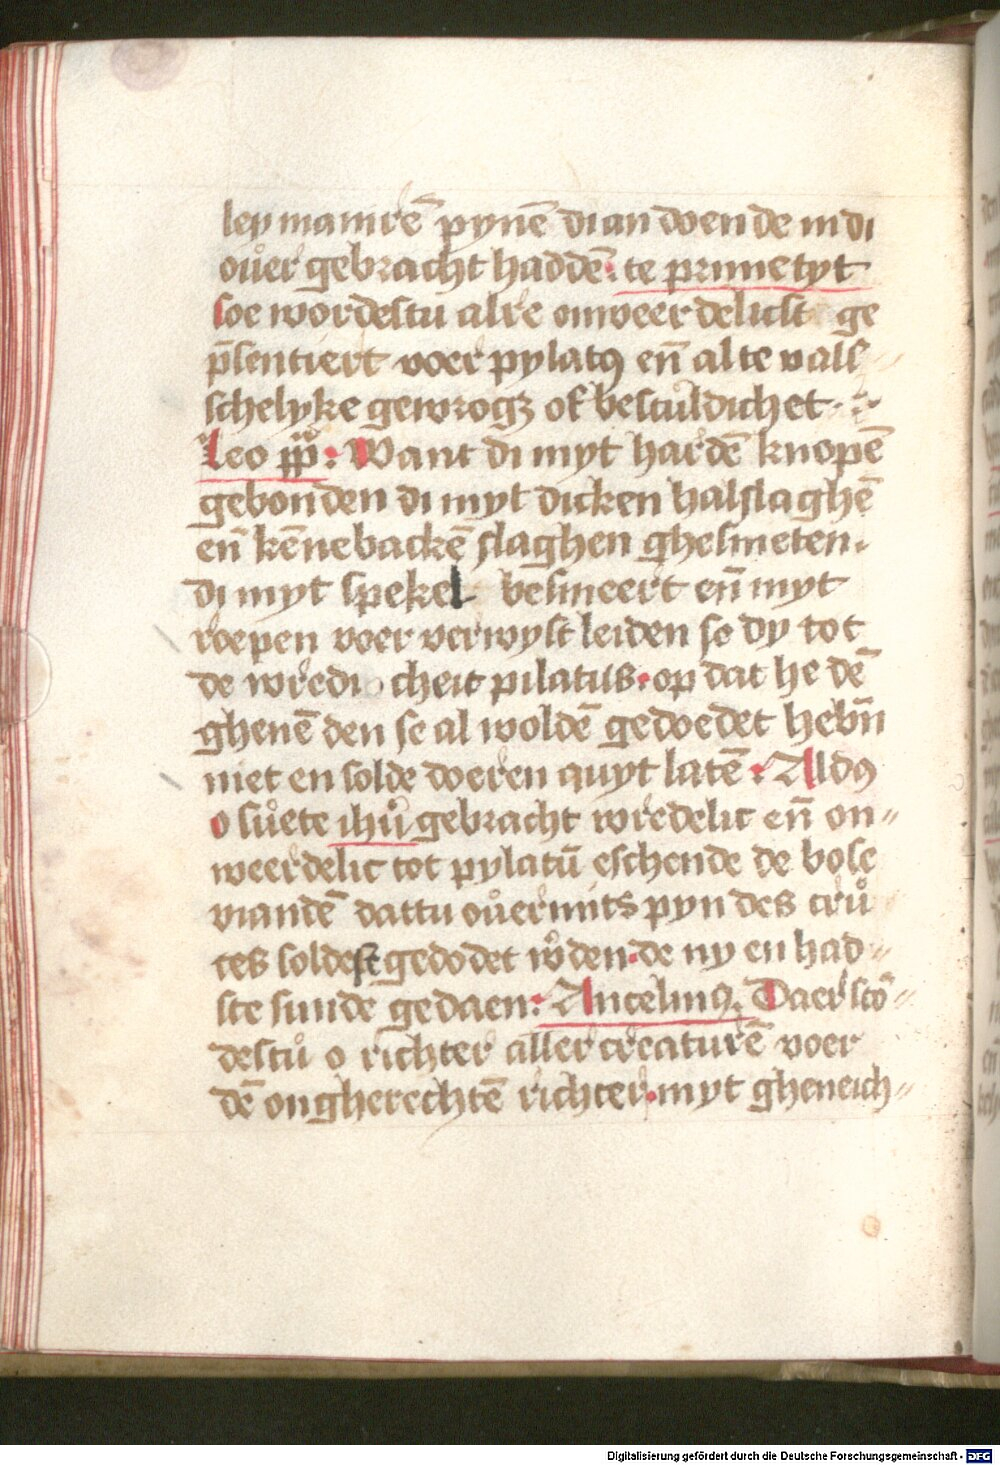 ley manirē pynē di an doen de in di
oůer gebracht haddē: te prime tyt
soe wordestu alre onweer delicst ge
p̄sentiert voer pylatꝰ eñ al te vals
schelyke gewrogꝫ of bescůldichet
Leo pp̄: Want di myt hardē knopē
gebonden di myt dicken halslaghē
eñ kēnebackē slaghen ghesmeten.
di myt spekel besmeert eñ myt
roepen voer verwyst leiden se dy tot
de wredi cheit pilatus. op dat he dē
ghenē den se al woldē gedoedet hebn̄
niet en solde doeren quyt latē: Aldꝰ
o sůete ihů gebracht wredelic eñ on-
weerdelic tot pylatū eschende de bose
viandē dattu oůermits pyn des crů
ces soldest gedodet wͦden. de ny en had-
ste sunde gedaen: Ancelmꝰ. Daer stō-
destů o richter aller creaturē voer
dē ongherechtē richter. myt gheneich-
Digitalisierung gefördert durch die Deutsche Forschungsgemeinschaft - DFG